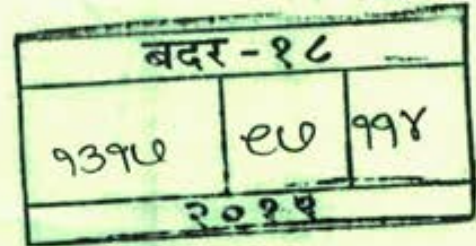 बदर - १८
१३१७ ९७ ११४
२०१५